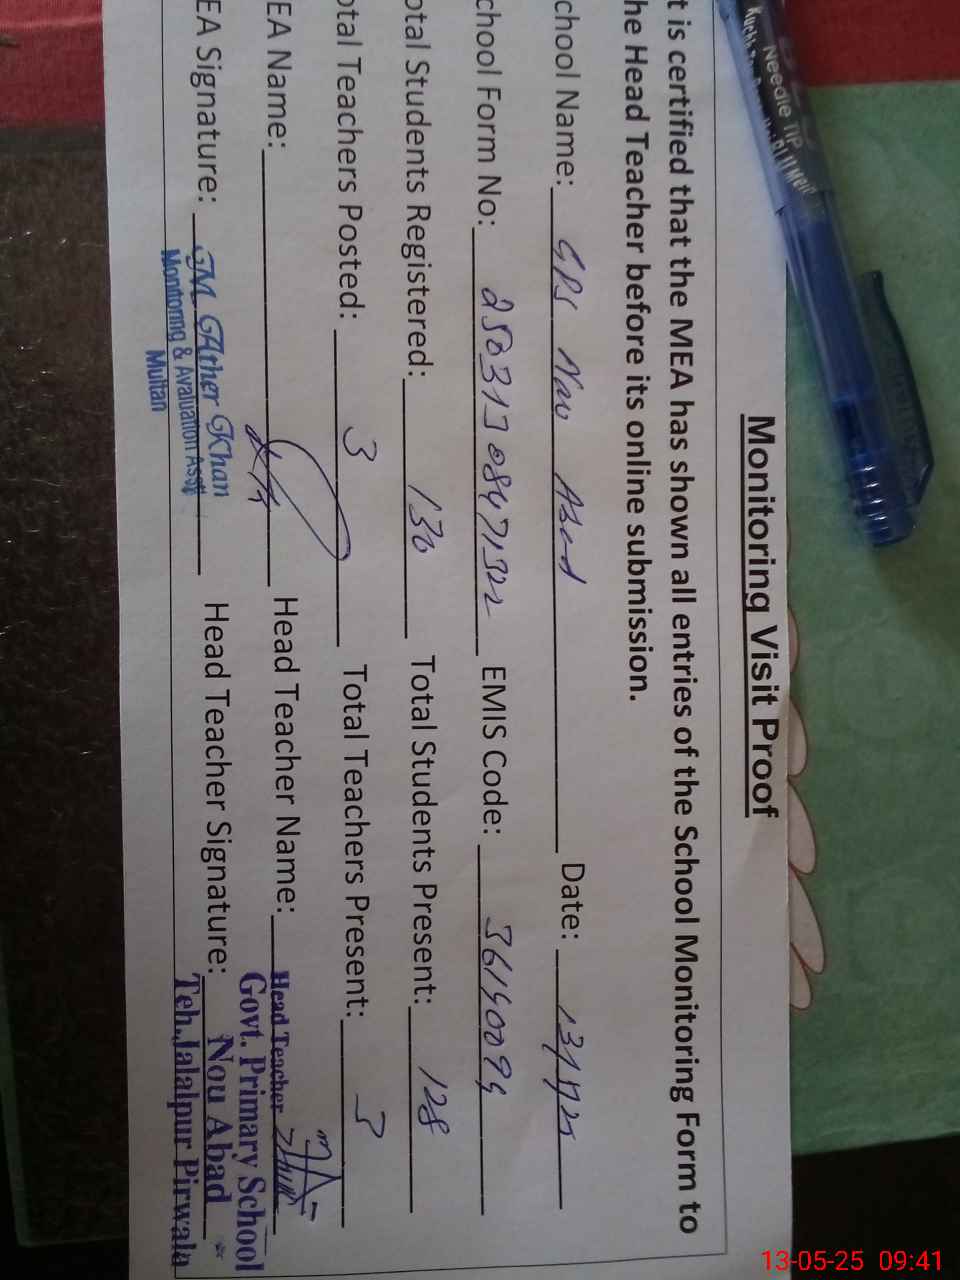 Monitoring Visit Proof
t is certified that the MEA has shown all entries of the School Monitoring Form to
he Head Teacher before its online submission.
chool Name: GPS Nau Abad Date: 13/5/25
chool Form No: EMIS Code:
otal Students Registered: 130 Total Students Present: 128
otal Teachers Posted: 3 Total Teachers Present: 3
EA Name: Head Teacher Name:
EA Signature: GM Ather Khan Head Teacher Signature:
Monitoring & Avaluation Asstt
Multan
Head Teacher
Govt. Primary School
Nou Abad
Teh. Jalalpur Pirwala
Needle TIP
13-05-25 09:41